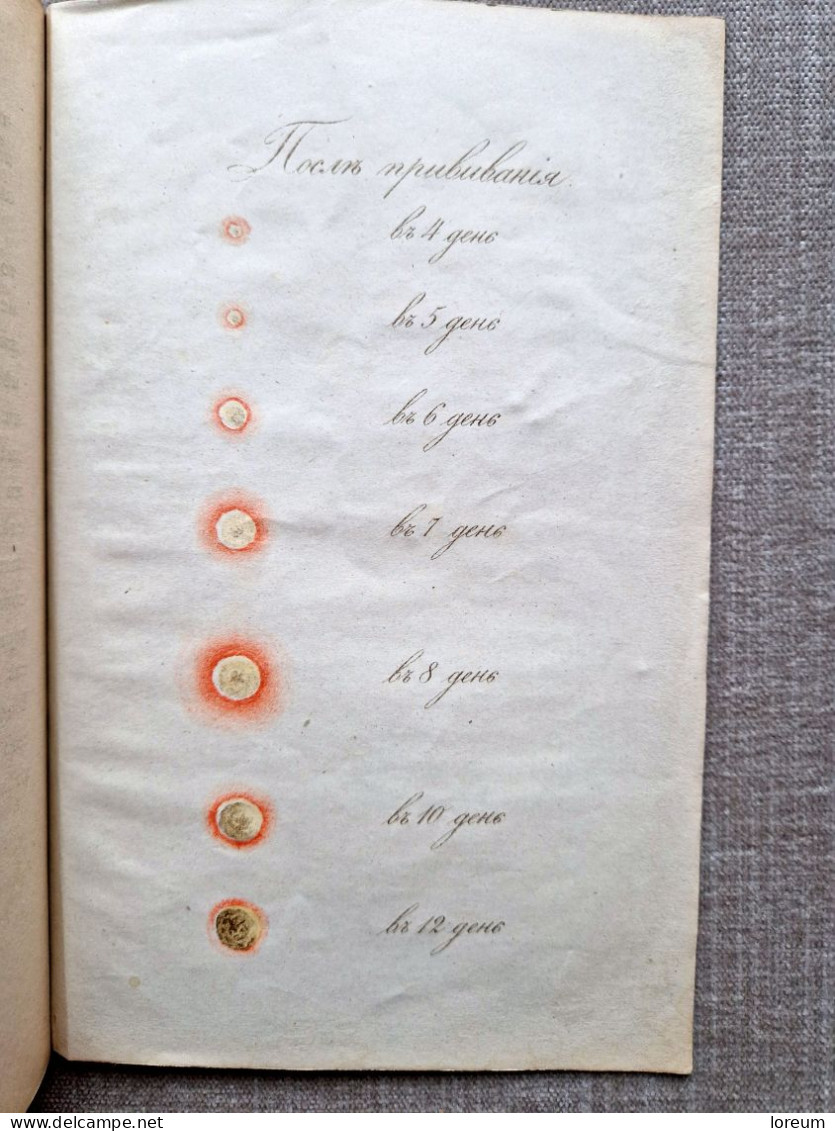 Послѣ прививанія.
въ 4 день
въ 5 день
въ 6 день
въ 7 день
въ 8 день
въ 10 день
въ 12 день
www.delcampe.net
loreum